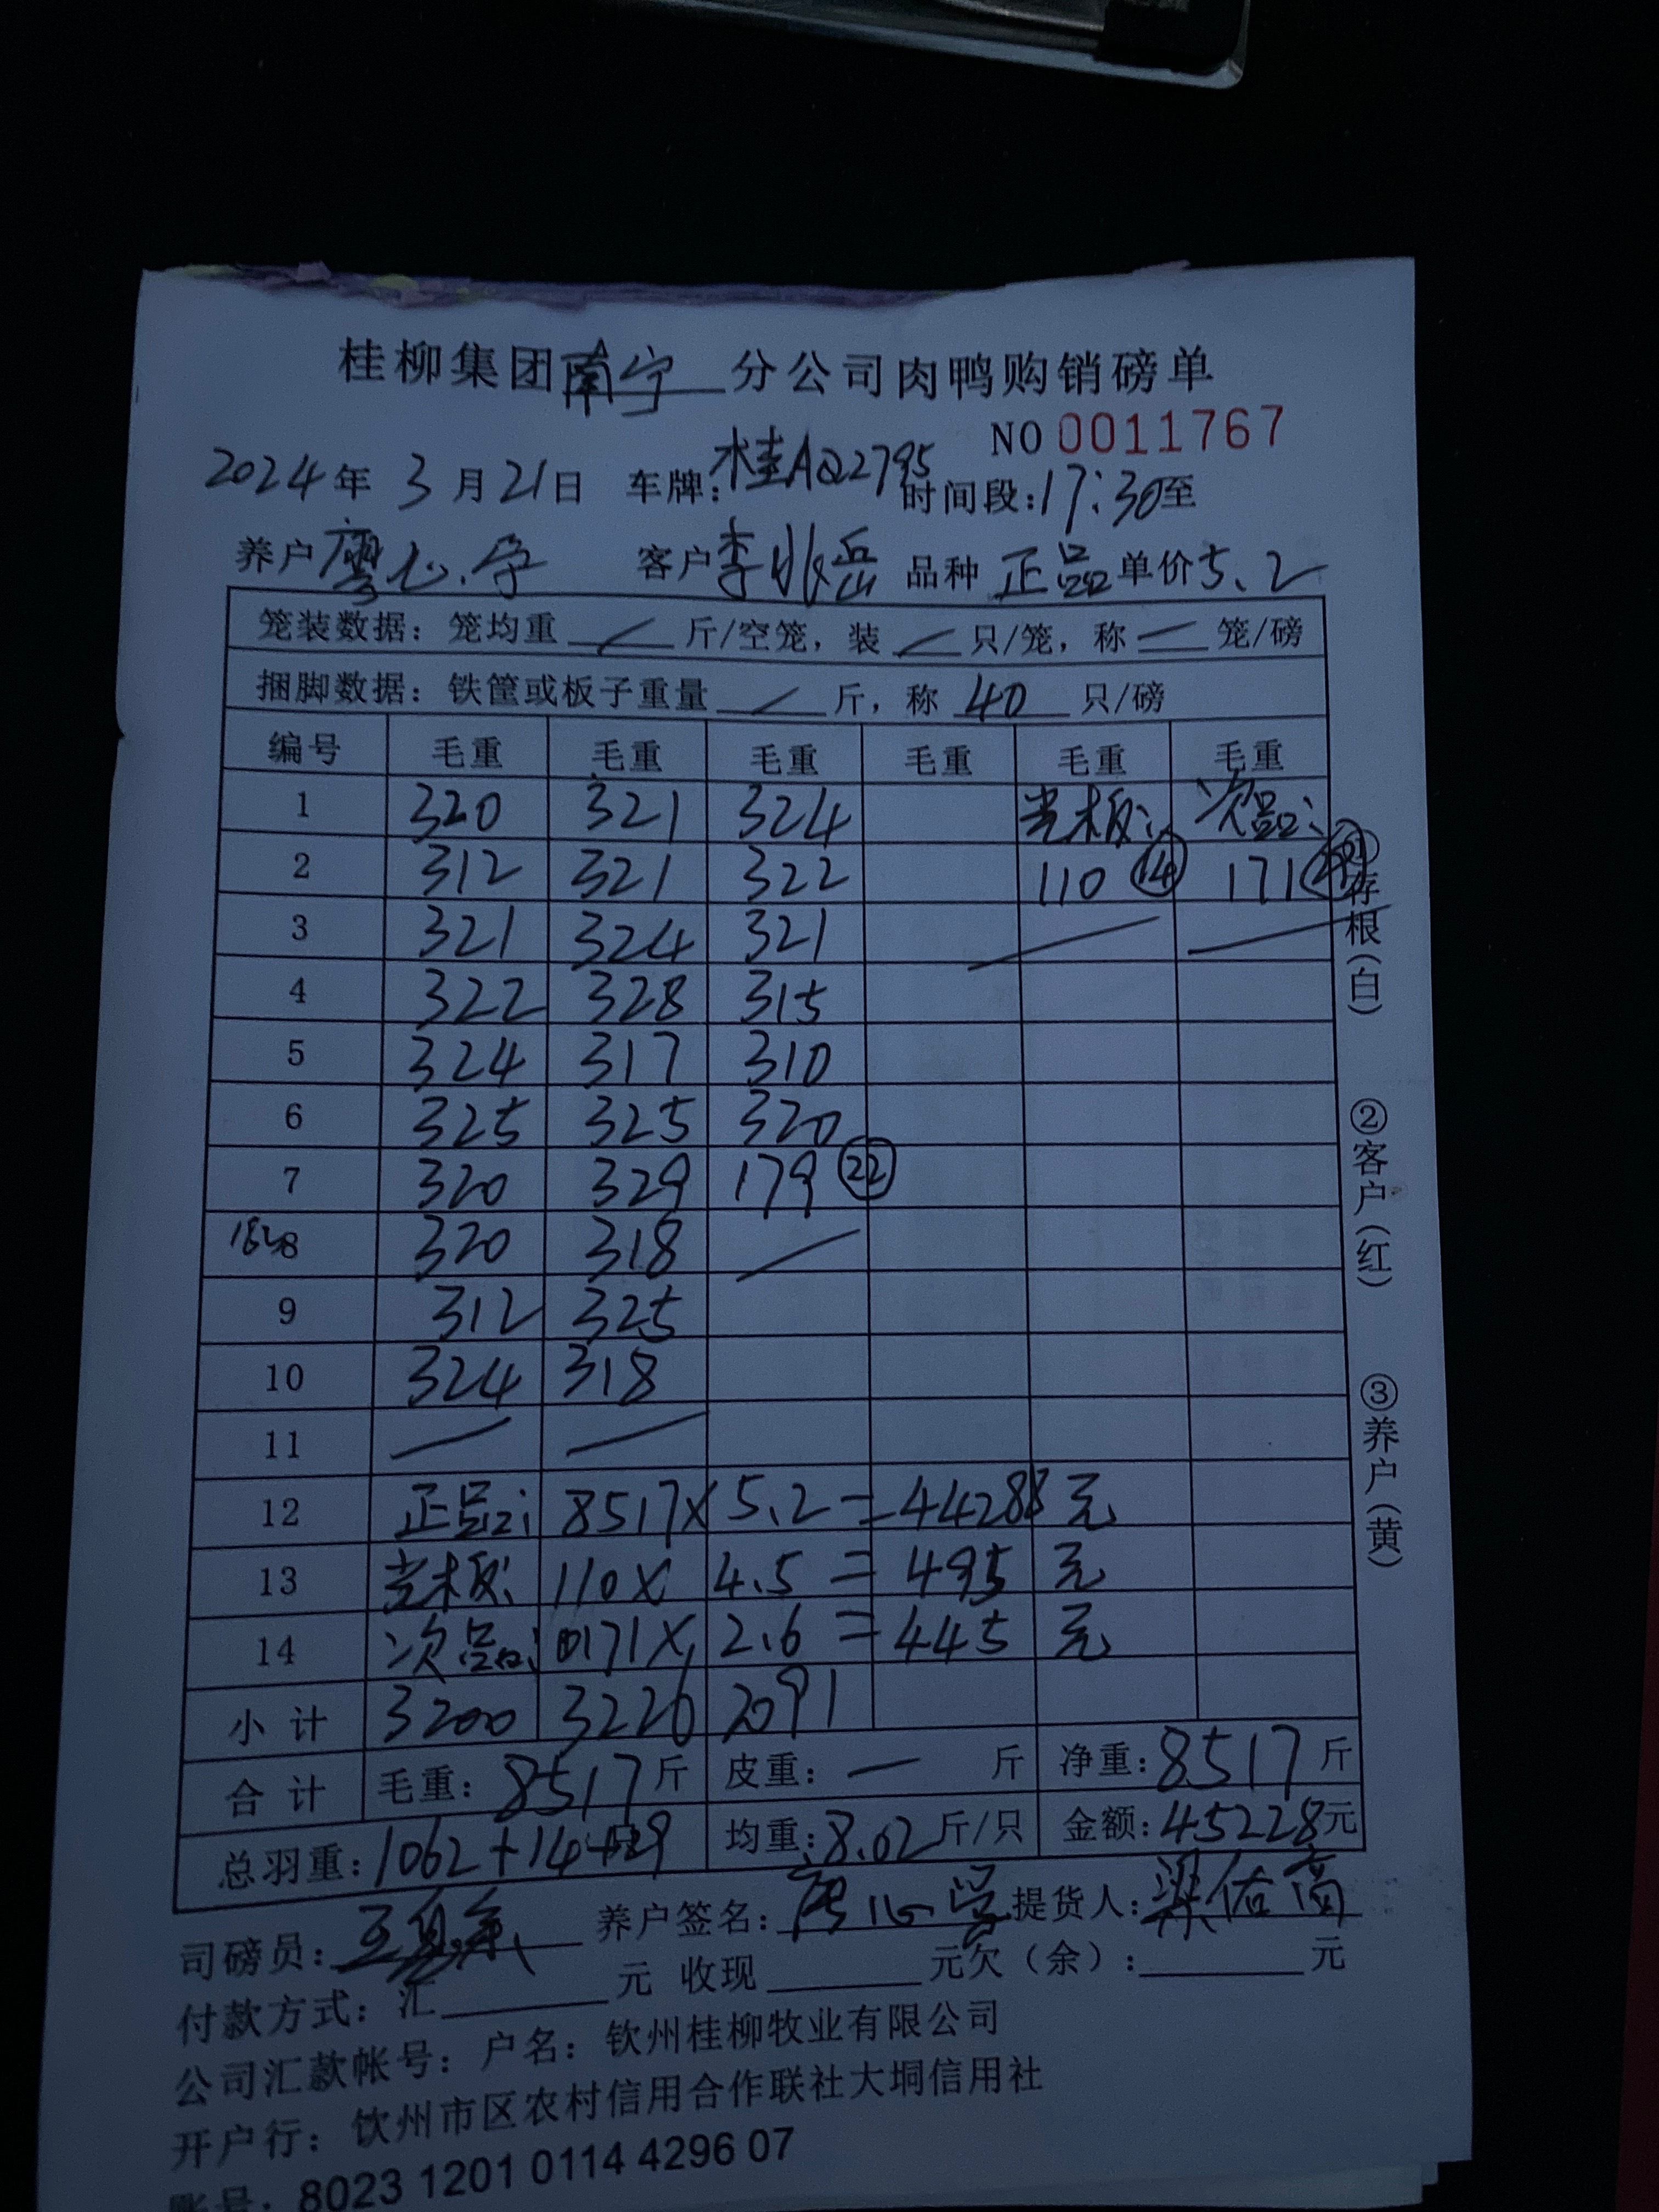 桂柳集团南宁分公司肉鸭购销磅单
NO 0011767
2024年3月21日 车牌:桂AQ2795 时间段:17:30至
养户廖 客户李兆岳 品种 正品 单价5.2
笼装数据: 笼均重 / 斤/空笼, 装 / 只/笼, 称 — 笼/磅
捆脚数据: 铁筐或板子重量 / 斤, 称 40 只/磅
编号 毛重 毛重 毛重 毛重 毛重 毛重
1 320 321 324 光板: 次品:
2 312 321 322 110 ⑭ 171
3 321 324 321
4 322 328 315
5 324 317 310
6 325 325 320
7 320 329 179 ㉒
8 320 318 /
9 312 325
10 324 318
11 / /
12 正品: 8517×5.2=44288元
13 光板: 110×4.5=495元
14 次品: 171×2.6=445元
小计 3200 3226 2091
合计 毛重: 8517斤 皮重: — 斤 净重: 8517斤
总羽重: 1062+14+29 均重: 8.02斤/只 金额: 45228元
司磅员: 养户签名: 提货人: 梁佑高
付款方式: 汇 元 收现 元欠(余): 元
公司汇款帐号: 户名: 钦州桂柳牧业有限公司
开户行: 钦州市区农村信用合作联社大垌信用社
账号: 8023 1201 0114 4296 07
①存根(白) ②客户(红) ③养户(黄)